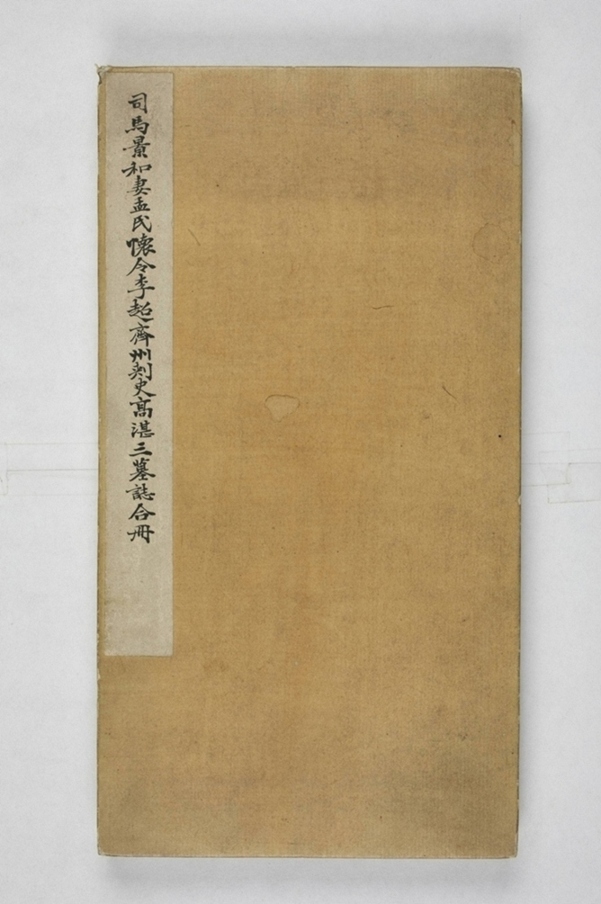 司馬景和妻孟氏懷令李超齊州刺史高湛三墓誌合冊